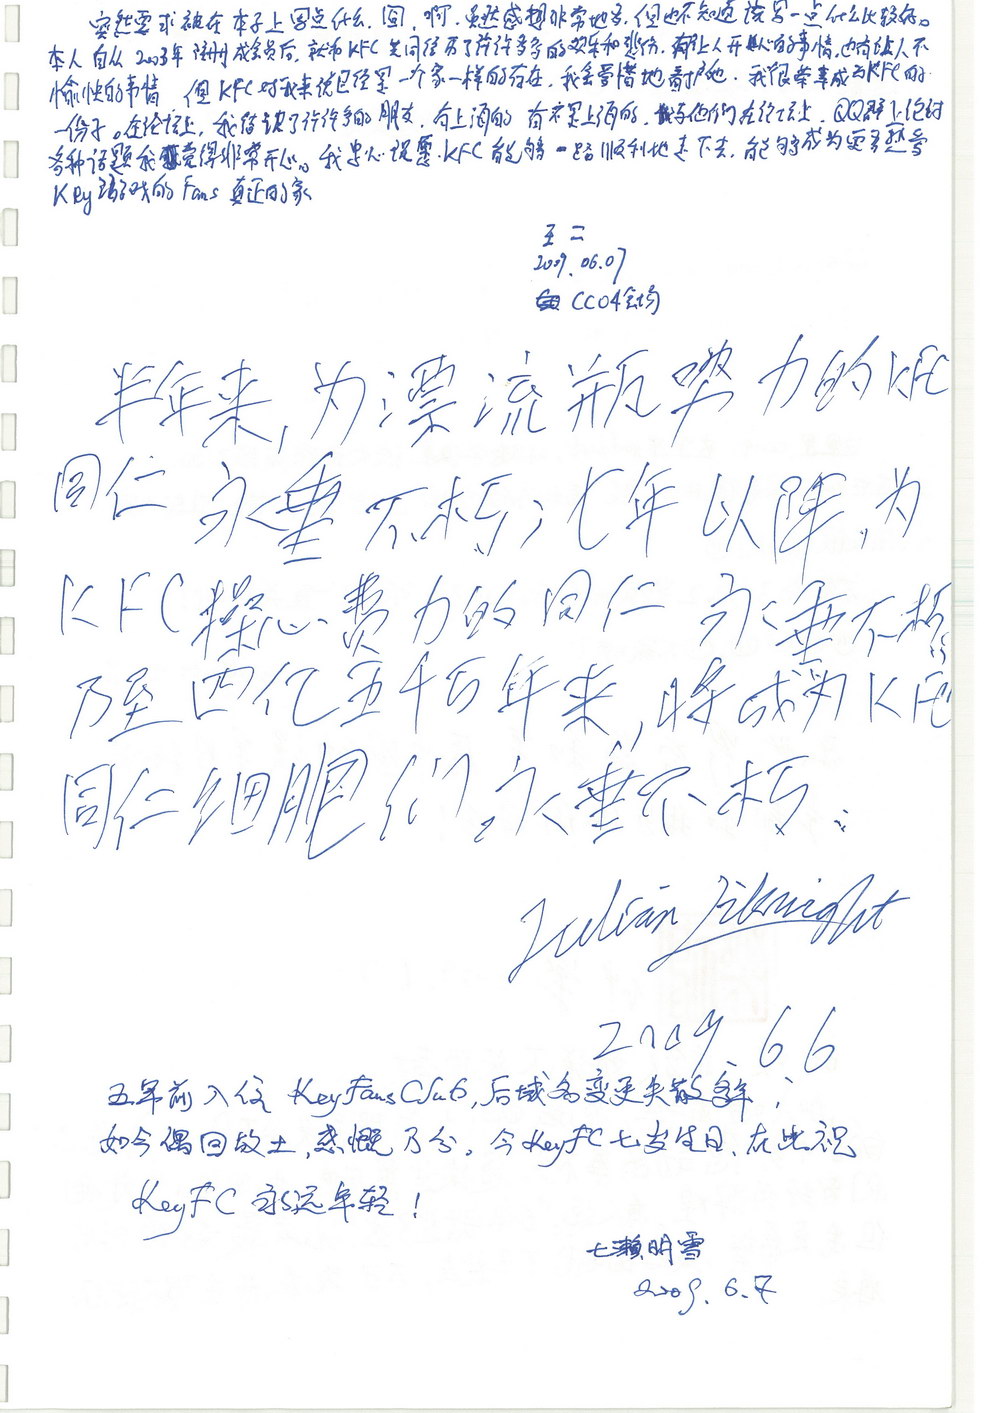 突然要求被在本子上写点什么，囧，啊，虽然感想非常地多，但也不知道该写一点什么比较好。
本人自从2003年注册成会员后，就和KFC共同经历了许许多多的欢乐和悲伤，有让人开心的事情，也有让人不
愉快的事情，但KFC对我来说已经是一个家一样的存在，我会尽情地看护她。我很荣幸成为KFC的
一份子。在论坛上，我结识了许许多的朋友，有上酒的，有不是上酒的，每与他们在论坛上、QQ群上论讨
各种话题我觉得非常开心。我衷心祝愿KFC能够一路顺利地走下去，能够成为更多热爱
Key游戏的Fans真正的家
王二
2009.06.07
CC04会场
半年来，为漂流瓶努力的KFC
同仁永垂不朽；七年以降，为
KFC操心费力的同仁永垂不朽；
乃至四亿五千万年来，将成为KFC
同仁细胞们，永垂不朽；
Julian Jiknight
2009.6.6
五年前入住KeyFansClub，后域名变更失散多年；
如今偶回故土，感慨万分。今KeyFC七岁生日，在此祝
KeyFC永远年轻！
七瀬明雪
2009.6.7